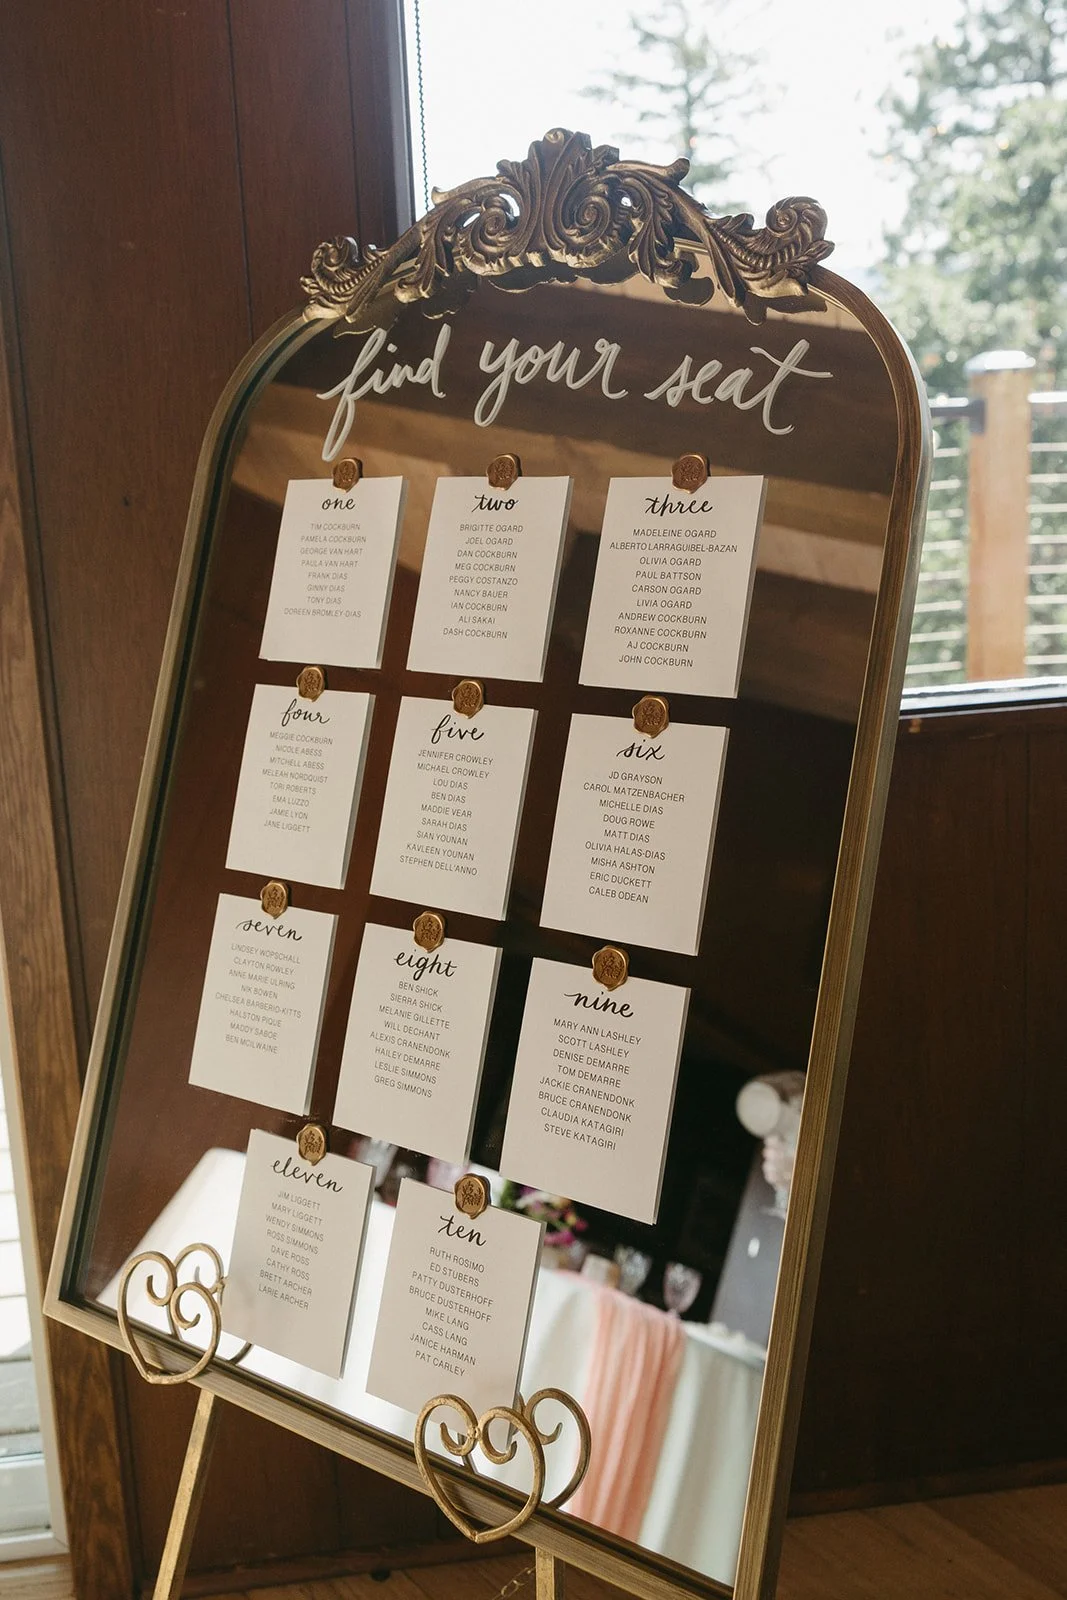 find your seat
one
TIM COCKBURN
PAMELA COCKBURN
GEORGE VAN HART
PAULA VAN HART
FRANK DIAS
GINNY DIAS
TONY DIAS
DOREEN BROMLEY-DIAS
two
BRIGITTE OGARD
JOEL OGARD
DAN COCKBURN
MEG COCKBURN
PEGGY COSTANZO
NANCY BAUER
IAN COCKBURN
ALI SAKAI
DASH COCKBURN
three
MADELEINE OGARD
ALBERTO LARRAGUIBEL-BAZAN
OLIVIA OGARD
PAUL BATTSON
CARSON OGARD
LIVIA OGARD
ANDREW COCKBURN
ROXANNE COCKBURN
AJ COCKBURN
JOHN COCKBURN
four
MEGGIE COCKBURN
NICOLE ABESS
MITCHELL ABESS
MELEAH NORDQUIST
TORI ROBERTS
EMA LUZZO
JAMIE LYON
JANE LIGGETT
five
JENNIFER CROWLEY
MICHAEL CROWLEY
LOU DIAS
BEN DIAS
MADDIE VEAR
SARAH DIAS
SIAN YOUNAN
KAVLEEN YOUNAN
STEPHEN DELL'ANNO
six
JD GRAYSON
CAROL MATZENBACHER
MICHELLE DIAS
DOUG ROWE
MATT DIAS
OLIVIA HALAS-DIAS
MISHA ASHTON
ERIC DUCKETT
CALEB ODEAN
seven
LINDSEY WOPSCHALL
CLAYTON ROWLEY
ANNE MARIE ULRING
NIK BOWEN
CHELSEA BARBERIO-KITTS
HALSTON PIQUE
MADDY SABOE
BEN MCILWAINE
eight
BEN SHICK
SIERRA SHICK
MELANIE GILLETTE
WILL DECHANT
ALEXIS CRANENDONK
HAILEY DEMARRE
LESLIE SIMMONS
GREG SIMMONS
nine
MARY ANN LASHLEY
SCOTT LASHLEY
DENISE DEMARRE
TOM DEMARRE
JACKIE CRANENDONK
BRUCE CRANENDONK
CLAUDIA KATAGIRI
STEVE KATAGIRI
eleven
JIM LIGGETT
MARY LIGGETT
WENDY SIMMONS
ROSS SIMMONS
DAVE ROSS
CATHY ROSS
BRETT ARCHER
LARIE ARCHER
ten
RUTH ROSIMO
ED STUBERS
PATTY DUSTERHOFF
BRUCE DUSTERHOFF
MIKE LANG
CASS LANG
JANICE HARMAN
PAT CARLEY